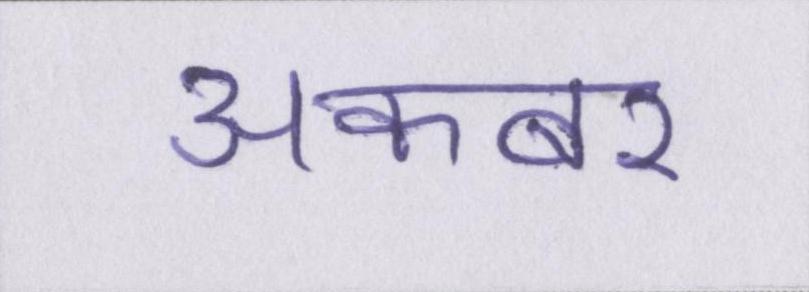 अकबर